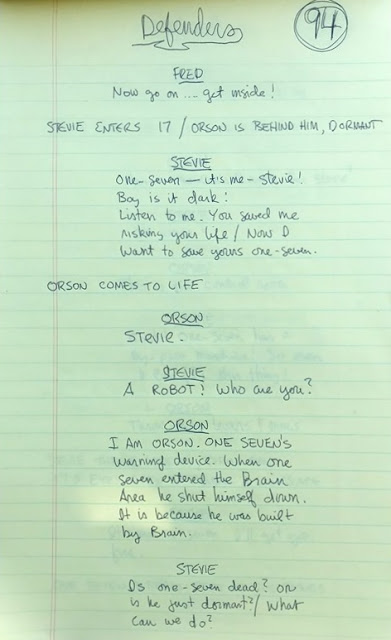 Defenders
94
FRED
Now go on .... get inside!
STEVIE ENTERS 17 / ORSON IS BEHIND HIM, DORMANT
STEVIE
One-seven — it's me - Stevie!
Boy is it dark!
Listen to me. You saved me
risking your life / Now I
want to save yours one-seven.
ORSON COMES TO LIFE
ORSON
Stevie.
STEVIE
A ROBOT! Who are you?
ORSON
I AM ORSON. ONE SEVEN'S
warning device. When one
seven entered the Brain
Area he shut himself down.
It is because he was built
by Brain.
STEVIE
Is one-seven dead? or
is he just dormant?/ What
can we do?